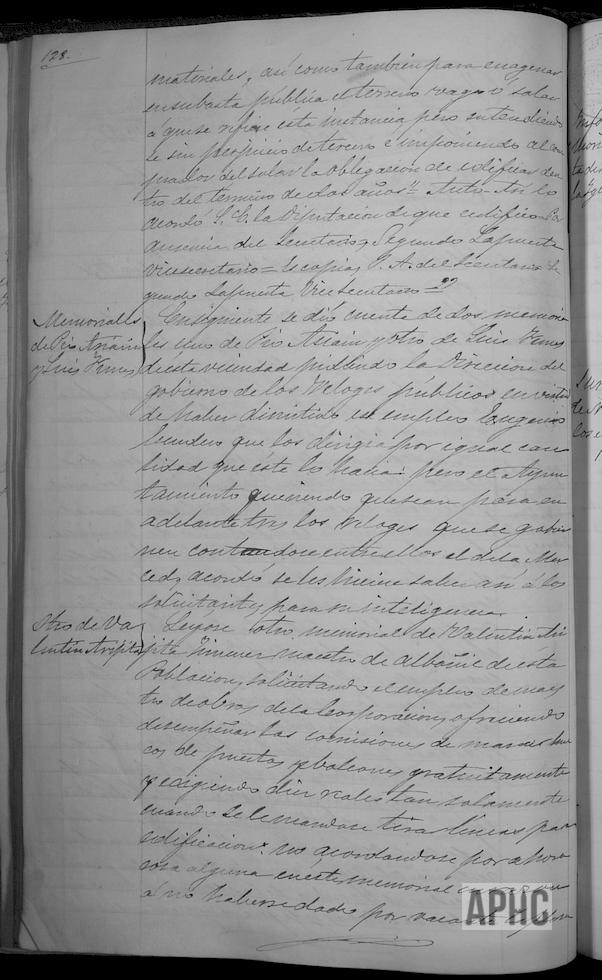 128.
materiales, así como también para enagenar
en subasta pública el terreno vago ó solar
á que se refiere esta instancia pero entendiendo
se sin perjuicio de tercero é imponiendo al com
prador del solar la obligacion de edificar den
tro del termino de dos años" Auto. Así lo
acordó S. E. la Diputacion de que certifico Por
ausencia del Secretario, Segundo Lapuerta
Vicesecretario = Es copia, P. A. del Secretario Se
gundo Lapuerta Vicesecretario = "
Memoriales
de Pio
y Luis
Enseguida se dió cuenta de dos memoria
les uno de Pio y otro de Luis
de esta vecindad pidiendo la Direccion del
gobierno de los Reloges públicos en vista
de haber dimitido ese empleo Eugenio
que los dirigia por igual can
tidad que éste lo hacia: pero el Ayun
tamiento queriendo que sean para en
adelante tres los reloges que se gobier
nen contandose entre ellos el de la Mer
ced, acordó se les hiciese saber así á los
solicitantes para su inteligencia.
Otro de Va
lentin Arpita
Leyose otro memorial de Valentin Ar
pita Gimenez maestro de albañil de esta
Poblacion, solicitando el empleo de maes
tro de obras de la Corporacion, ofreciendo
desempeñar las comisiones de marcar hue
cos de puertas y balcones gratuitamente
y exigiendo diez reales tan solamente
cuando se le mandase tirar lineas para
edificacion: no acordandose por ahora
cosa alguna en este memorial
á no haberse dado por vacante
APHC